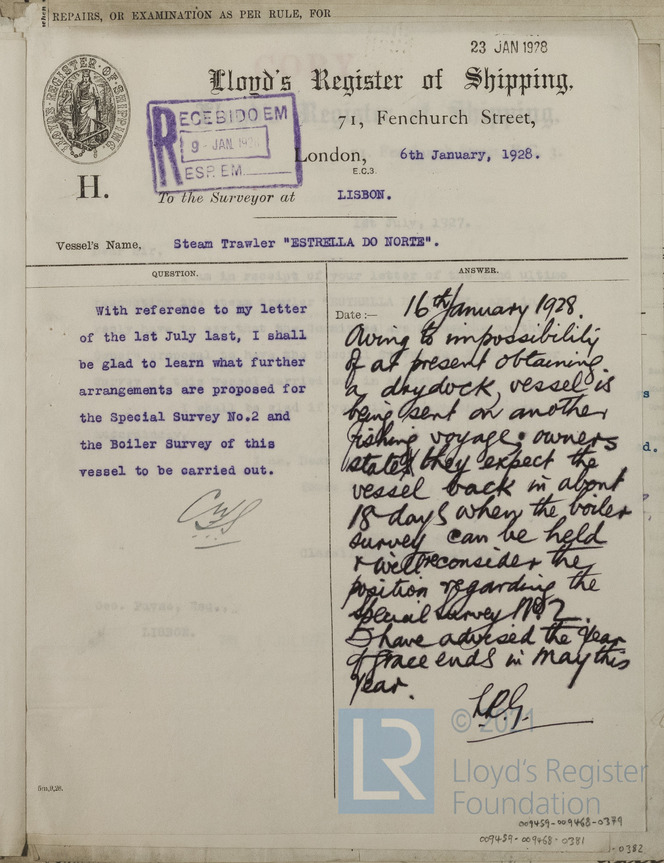 REPAIRS, OR EXAMINATION AS PER RULE, FOR
COPY
23 JAN 1928
LLOYD'S REGISTER OF SHIPPING.
Lloyd's Register of Shipping,
71, Fenchurch Street,
RECEBIDO EM
9 - JAN. 1928
RESP. EM
London, 6th January, 1928.
E.C.3.
H.
To the Surveyor at LISBON.
1st July, 1927.
Vessel's Name, Steam Trawler "ESTRELLA DO NORTE".
QUESTION.
With reference to my letter
of the 1st July last, I shall
be glad to learn what further
arrangements are proposed for
the Special Survey No.2 and
the Boiler Survey of this
vessel to be carried out.
Geo. Payne, Esq.,
LISBON.
6m,9,26.
ANSWER.
Date :— 16th January 1928.
Owing to impossibility
of at present obtaining
a drydock, vessel is
being sent on another
fishing voyage; owners
state they expect the
vessel back in about
18 days when the boiler
survey can be held
& will reconsider the
position regarding the
special survey No 2.
I have advised the year
of grace ends in May this
year.
LR
© 2021
Lloyd's Register
Foundation
009459-009468-0379
009459-009468-0381
-0382